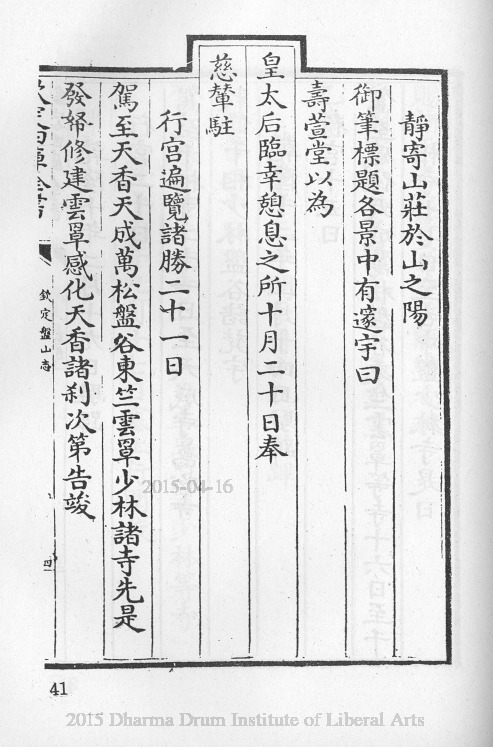 靜寄山莊於山之陽
御筆標題各景中有邃宇曰
壽萱堂以為
皇太后臨幸憩息之所十月二十日奉
慈輦駐
行宮遍覽諸勝二十一日
駕至天香天成萬松盤谷東竺雲罩少林諸寺先是
發帑修建雲罩感化天香諸刹次第告竣
欽定盤山志
四
41
2015-04-16
2015 Dharma Drum Institute of Liberal Arts